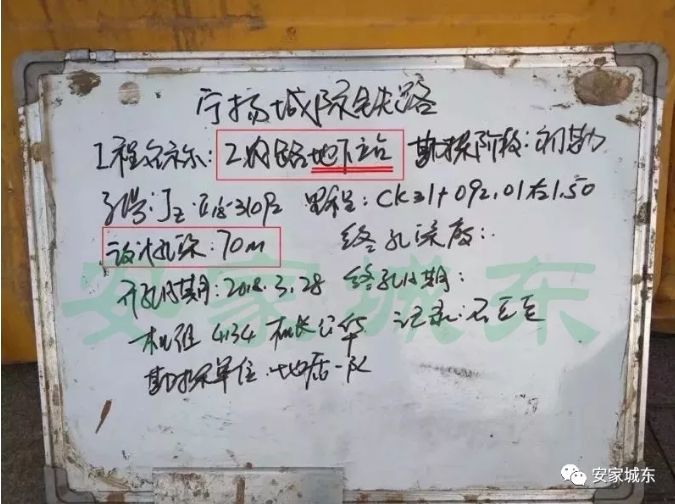 宁扬城际铁路
工程名称: 地下站 勘探阶段: 初勘
孔号: 里程: CK31+092.01右1.50
设计孔深: 70m 终孔深度:
开孔日期: 2018.3.28 终孔日期:
机组 4134 机长 华 记录:
勘探单位: 一队
安家城东
安家城东